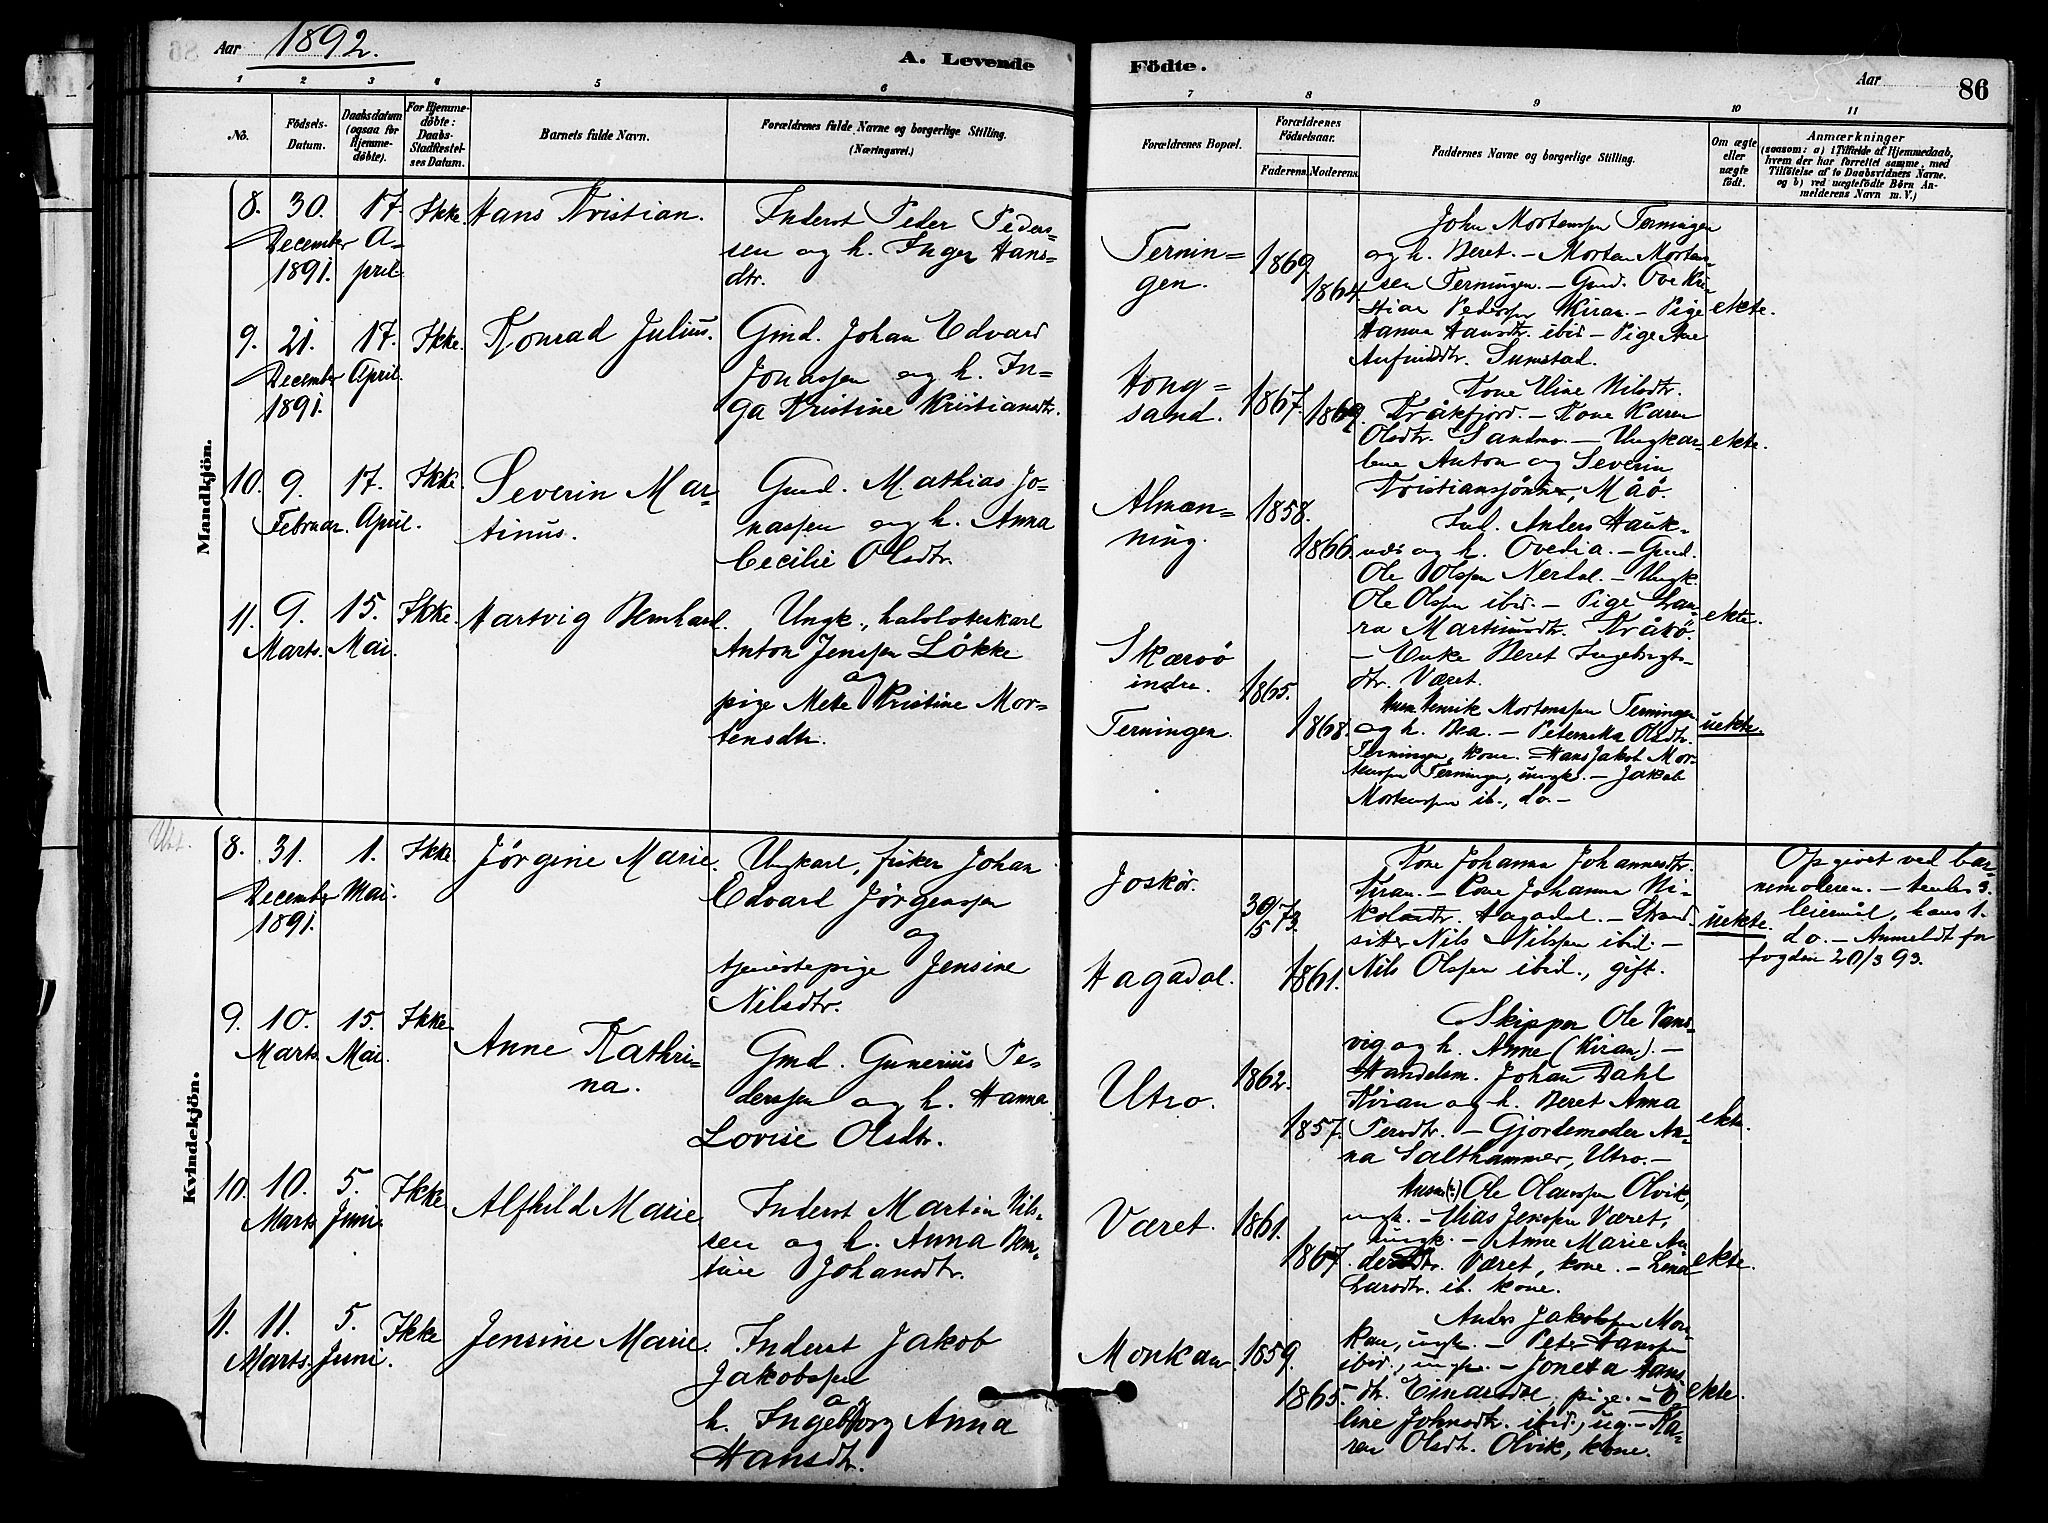 Aar 1892.
A. Levende
Födte.
Aar
86
1 2 3 4 5 6
7 8 9 10 11
No.
Födsels-
Datum.
Daabsdatum
(ogsaa for
Hjemme-
døbte).
For Hjemme-
døbte:
Daabs-
Stadfæstel-
ses Datum.
Barnets fulde Navn.
Forældrenes fulde Navne og borgerlige Stilling.
(Næringsvei.)
Forældrenes Bopæl.
Forældrenes
Födselsaar.
Faderens. Moderens.
Faddernes Navne og borgerlige Stilling.
Om ægte
eller
uægte
født.
Anmærkninger
(saasom: a) i Tilfælde af Hjemmedaab,
hvem der har forrettet samme, med
Tilføielse af to Daabsvidners Navne.
og b) ved uægtefödte Börn An-
melderens Navn m. V.)
Mandkjön.
8. 30.
December
1891.
17.
A-
pril.
Ikke.
Hans Kristian.
Inderst Peder Peders-
sen og h. Inger Hans-
dtr.
Ternin-
gen.
1869.
1864.
John Mortenssen Terningen
og h. Beret. - Morten Mortens-
sen Terningen. - Gmd. Ove Kri-
stian Pederssen Kiran. - Pige
Hanna Hansdtr. ibid - Pige Ane
Anfinddtr. Sumstad.
ekte.
9. 21.
December
1891.
17.
April.
Ikke.
Konrad Julius.
Gmd. Johan Edvard
Jonassen og h. In-
ga Kristine Kristiansdtr.
Hong-
sand.
1867.
1869.
Kone Eline Nilsdtr.
Kråkfjord. - Kone Karen
Olsdtr. Sandmo. - Ungkar-
lene Anton og Severin
Kristianssønner, Måø.
ekte.
10. 9.
Februar.
17.
April.
Ikke
Severin Mar-
tinus.
Gmd. Mathias Jo-
nassen og h. Anna
Cecilie Olsdtr.
Almæn-
ning.
1858.
1866.
Ind. Anders Hauk-
næs og h. Ovedia. - Gmd.
Ole Olssen Nerdal. - Ungk.
Ole Olssen ibid. - Pige Lau-
ra Martinusdtr. Kråkø.
- Enke Beret Ingebrigts-
dtr. Været.
ekte.
11. 9.
Marts.
15.
Mai.
Ikke.
Hartvig Bernhard.
Ungk., halvloterkarl
Anton Jenssen Løkke
og
pige Mette Kristine Mor-
tensdtr.
Skærvö
indre.
Terningen.
1865.
1868.
Henrik Mortenssen Terningen
og h. Bea. - Peternika Olsdtr.
Terningen, kone. - Hans Jakob Mor-
tenssen Terningen, ungk. - Jakob
Mortenssen ib., do. -
uekte.
Kvindekjön.
8. 31.
December
1891.
1.
Mai.
Ikke.
Jørgine Marie.
Ungkarl, fisker Johan
Edvard Jørgenssen
og
tjenestepige Jensine
Nilsdtr.
Joskør.
Hagadal.
30/5 73.
1861.
Kone Johanna Johannesdtr.
Kiran. - Kone Johanna Ni-
kolasdtr. Hagadal. - Strand-
sitter Nils Nilssen ibid. -
Nils Olssen ibid., gift.
uekte.
Opgivet ved bar-
nemoderen. - hendes 3.
leiermål, hans 1.
do. - Anmeldt for
fogden 20/3 93.
9. 10.
Marts.
15.
Mai.
Ikke.
Anne Kathri-
na.
Gmd. Gunerius Pe-
derssen og h. Hanna
Lovise Olsdtr.
Utro.
1862.
1857.
Skipper Ole Vans-
vig og h. Anne (Kiran). -
Handelsm. Johan Dahl
Kiran og h. Beret Anna
Persdtr. - Gjordemoder An-
na Salthammer, Utro. -
ekte.
10. 10.
Marts
5.
Juni.
Ikke
Alfhild Marie
Inderst Martin Nils-
sen og h. Anna Bern-
tine Johansdtr.
Været.
1861.
1867.
Ole Olaussen Olvik,
ungk. - Elias Jenssen Været,
ungk. - Anne Marie An-
dersdtr. Været, kone. - Lena
Larsdtr. ib. kone.
ekte.
11. 11.
Marts.
5.
Juni.
Ikke
Jensine Marie.
Inderst Jakob
Jakobssen
og
h. Ingeborg Anna
Hansdtr.
Monkan
1859.
1865.
Anders Jakobssen Mon-
kan, ungk. - Peter Hanssen
ibid., ungk. - Joneta Hans-
dtr. Einarsdal, pige. - O-
line Johnsdtr. ibid., ug. - Ka-
ren Olsdtr. Olvik, kone.
ekte.